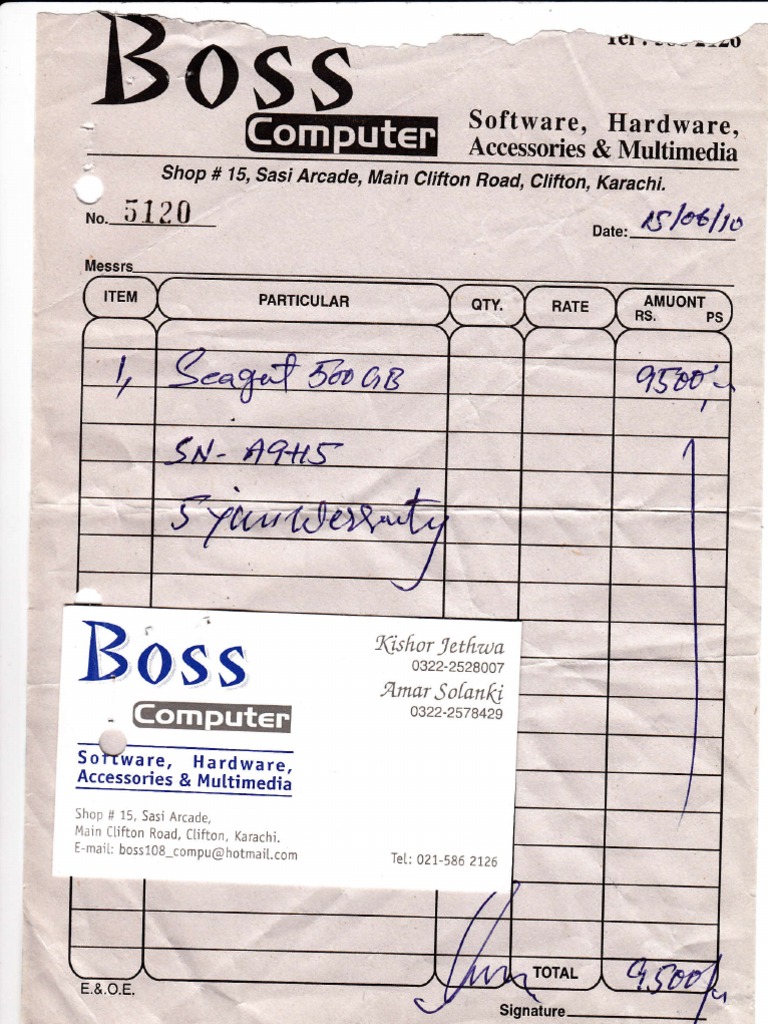 Boss
Computer
Software, Hardware,
Accessories & Multimedia
Shop # 15, Sasi Arcade, Main Clifton Road, Clifton, Karachi.
No. 5120
Date: 15/06/10
Messrs
ITEM PARTICULAR QTY. RATE AMUONT
RS. PS
1, Seagat 500 GB 9500/-
SN- A9H5
5 year Werranty
Boss
Computer
Software, Hardware,
Accessories & Multimedia
Kishor Jethwa
0322-2528007
Amar Solanki
0322-2578429
Shop # 15, Sasi Arcade,
Main Clifton Road, Clifton, Karachi.
E-mail: boss108_compu@hotmail.com
Tel: 021-586 2126
TOTAL 9500/-
E.&.O.E.
Signature